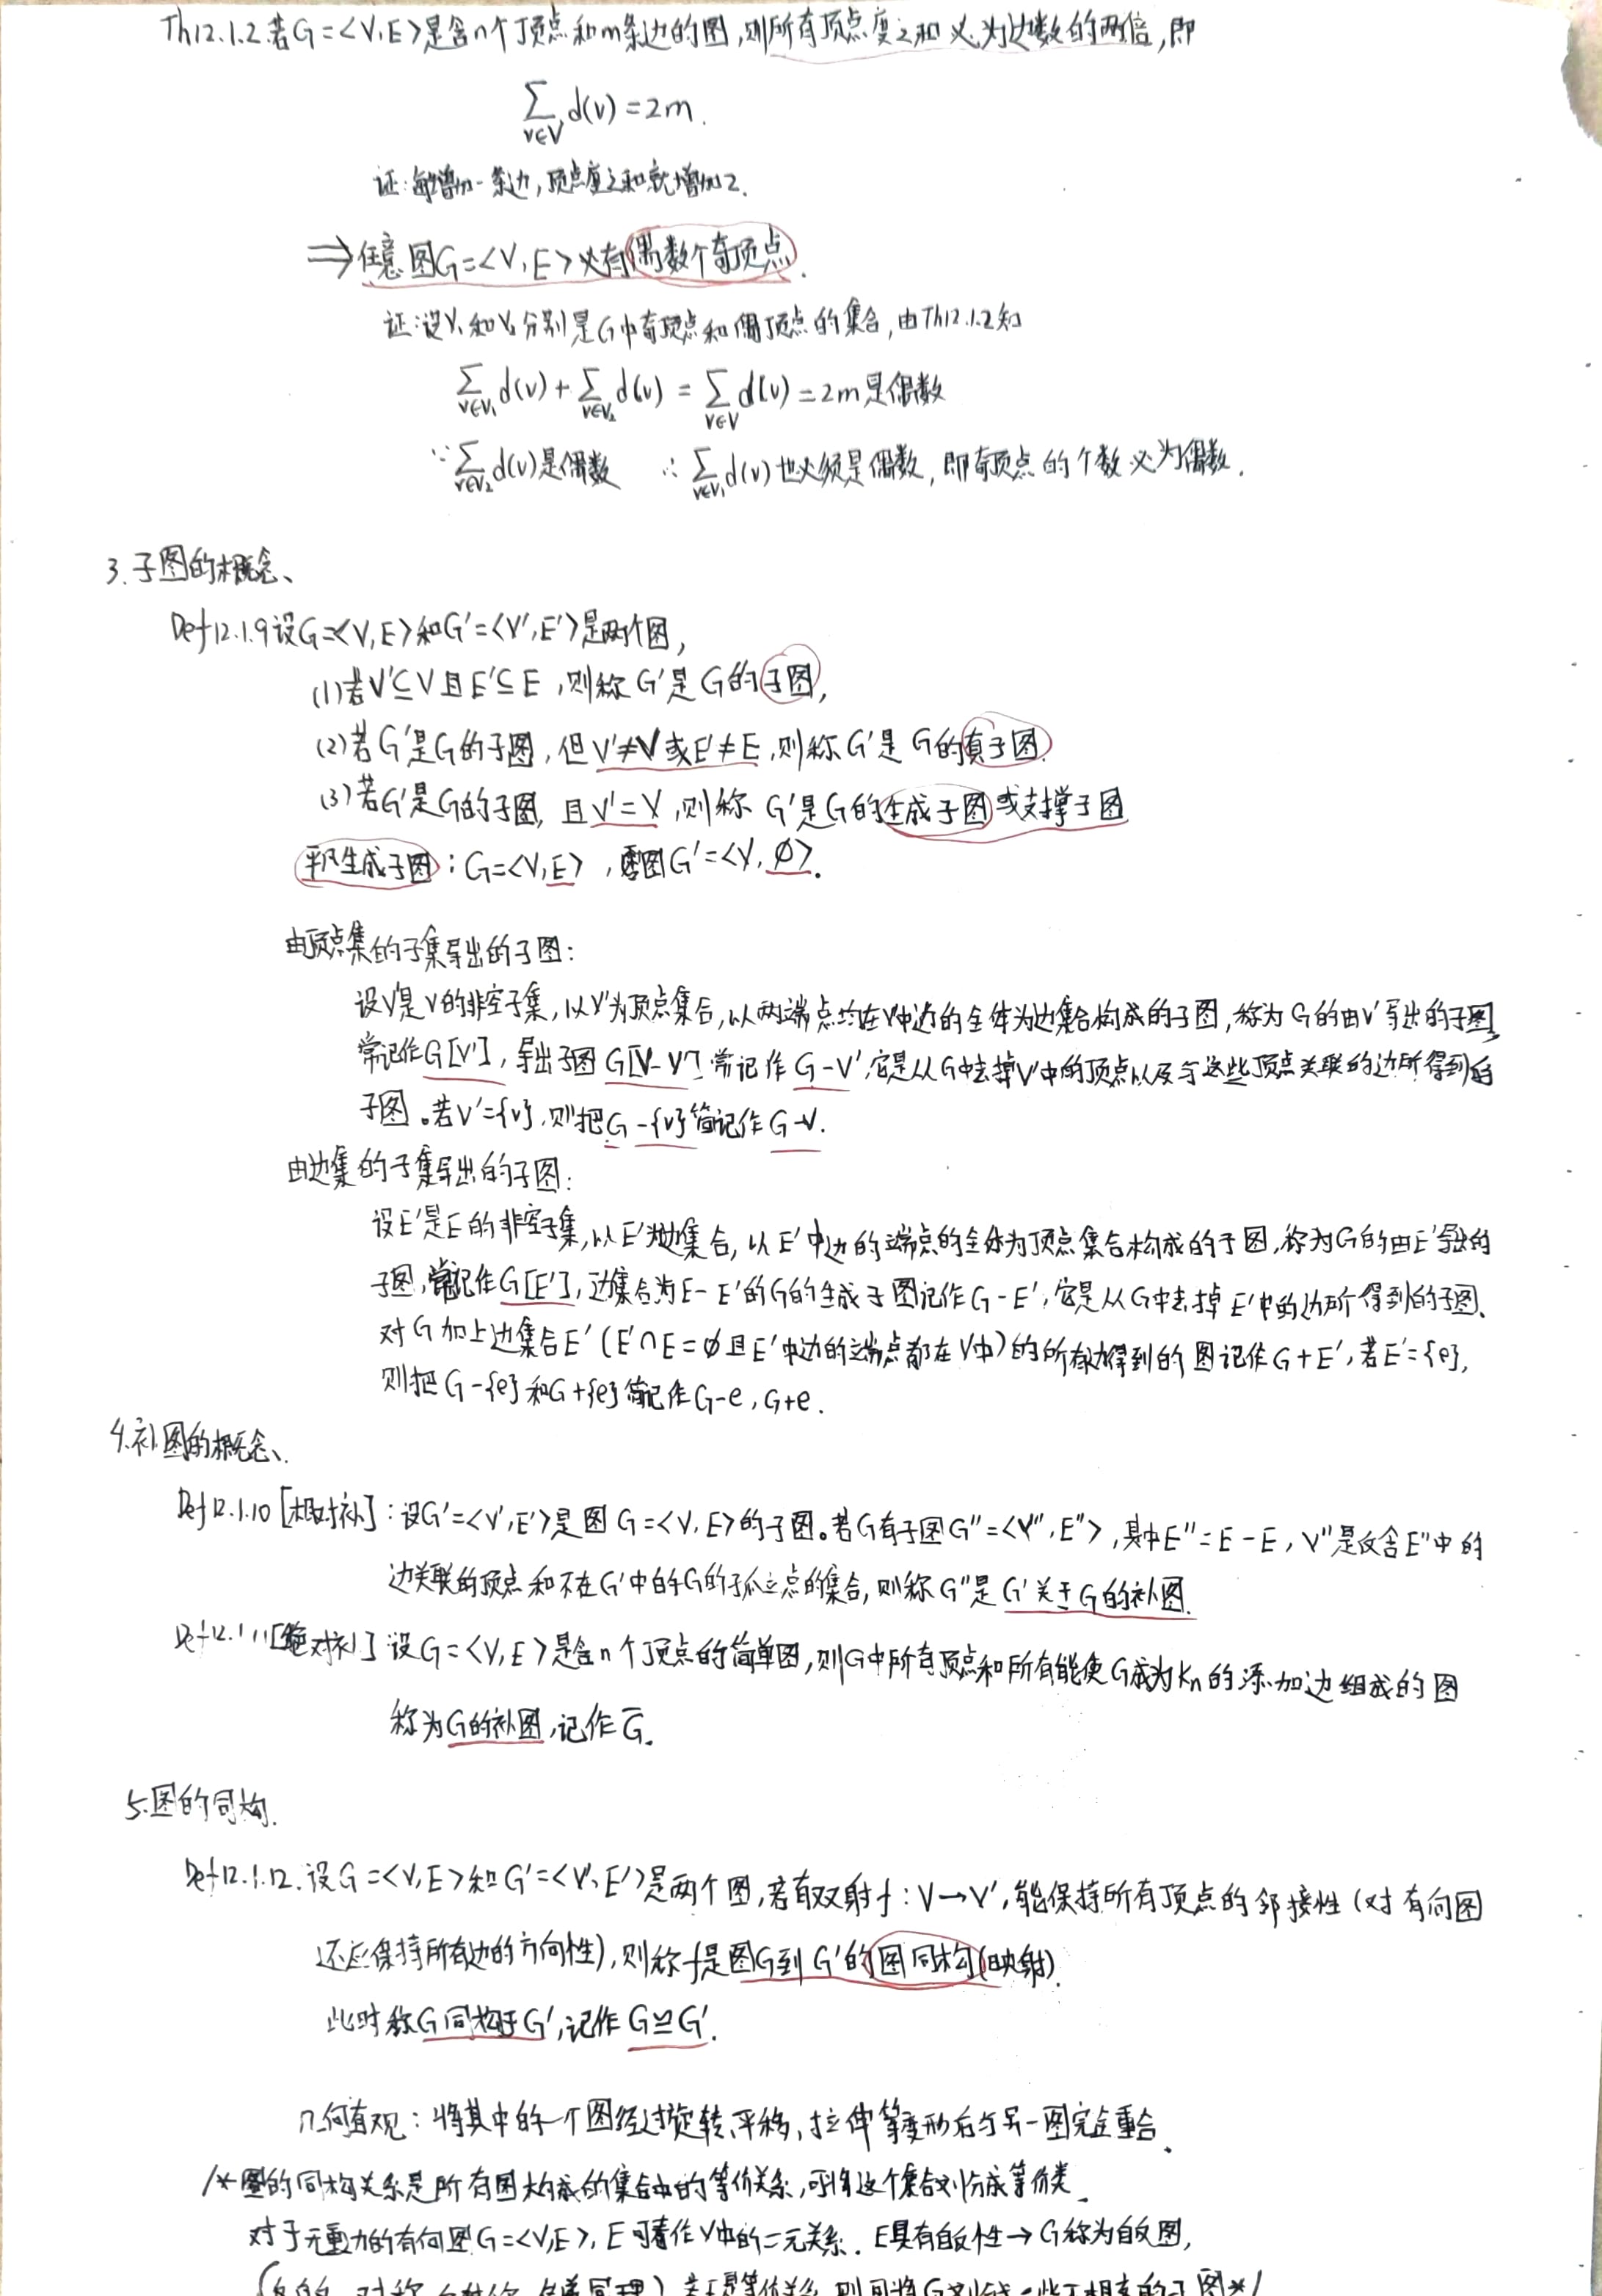 Th12.1.2.若G=<V,E>是含n个顶点和m条边的图,则所有顶点度之和必为边数的两倍,即
∑v∈V d(v)=2m.
证:每增加一条边,顶点度之和就增加2.
⇒任意图G=<V,E>必有偶数个奇顶点.
证:设V₁和V₂分别是G中奇顶点和偶顶点的集合,由Th12.1.2知
∑v∈V₁ d(v)+∑v∈V₂ d(v)=∑v∈V d(v)=2m是偶数
∵∑v∈V₂ d(v)是偶数 ∴∑v∈V₁ d(v)也必须是偶数,即奇顶点的个数必为偶数.
3.子图的概念、
Def12.1.9设G=<V,E>和G'=<V',E'>是两个图,
(1)若V'⊆V且E'⊆E,则称G'是G的子图,
(2)若G'是G的子图,但V'≠V或E'≠E,则称G'是G的真子图.
(3)若G'是G的子图,且V'=V,则称G'是G的生成子图或支撑子图
平凡生成子图:G=<V,E>,零图G'=<V,∅>.
由顶点集的子集导出的子图:
设V'是V的非空子集,以V'为顶点集合,以两端点均在V'中边的全体为边集合构成的子图,称为G的由V'导出的子图,
常记作G[V'],导出子图G[V-V']常记作G-V',它是从G中去掉V'中的顶点以及与这些顶点关联的边所得到的
子图。若V'={v},则把G-{v}简记作G-v.
由边集的子集导出的子图:
设E'是E的非空子集,以E'为边集合,以E'中边的端点的全体为顶点集合构成的子图,称为G的由E'导出的
子图,常记作G[E'],边集合为E-E'的G的生成子图记作G-E',它是从G中去掉E'中的边所得到的子图.
对G加上边集合E'(E'∩E=∅且E'中边的端点都在V中)的所有边得到的图记作G+E',若E'={e},
则把G-{e}和G+{e}简记作G-e,G+e.
4.补图的概念、
Def12.1.10[相对补]:设G'=<V',E'>是图G=<V,E>的子图。若G有子图G''=<V'',E''>,其中E''=E-E,V''是仅含E''中的
边关联的顶点和不在G'中的G的孤立点的集合,则称G''是G'关于G的补图.
Def12.1.11[绝对补]设G=<V,E>是含n个顶点的简单图,则G中所有顶点和所有能使G成为Kn的添加边组成的图
称为G的补图,记作G̅.
5.图的同构.
Def12.1.12.设G=<V,E>和G'=<V',E'>是两个图,若有双射f:V→V',能保持所有顶点的邻接性(对有向图
还应保持所有边的方向性),则称f是图G到G'的图同构(映射).
此时称G同构于G',记作G≌G'.
几何直观:将其中的一个图经过旋转、平移,拉伸等变形后与另一图完全重合.
/*图的同构关系是所有图构成的集合中的等价关系,可将这个集合划分成等价类.
对于无重边的有向图G=<V,E>,E可看作V中的二元关系.E具有自反性→G称为自反图,